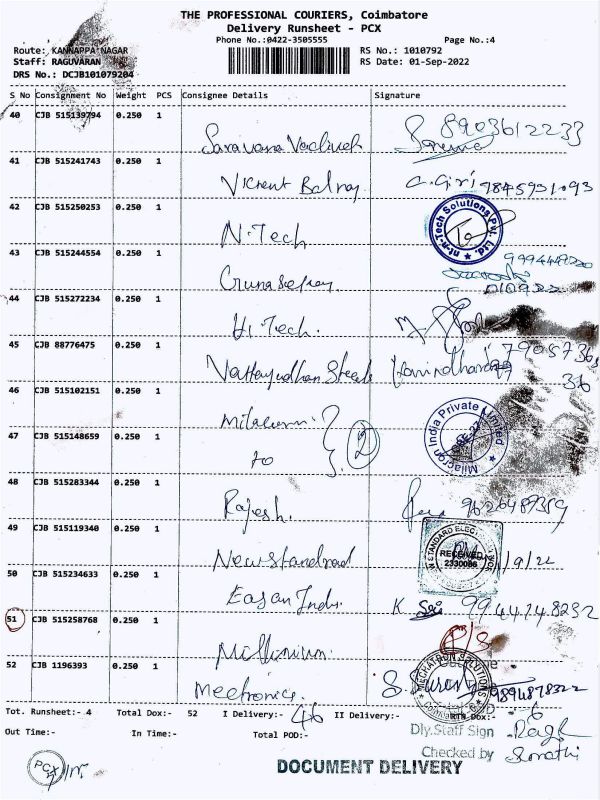 THE PROFESSIONAL COURIERS, Coimbatore
Delivery Runsheet - PCX
Phone No.:0422-3505555 Page No.:4
Route: KANNAPPA NAGAR RS No.: 1010792
Staff: RAGUVARAN RS Date: 01-Sep-2022
DRS No.: DCJB101079204
S No Consignment No Weight PCS Consignee Details Signature
40 CJB 515139794 0.250 1
Saravana 8903612233
41 CJB 515241743 0.250 1
C. Giri 9845931093
42 CJB 515250253 0.250 1
N. Tech nt-n-Tech Solutions Pvt. Ltd.
43 CJB 515244554 0.250 1
Gunasekaran
44 CJB 515272234 0.250 1
Hi Tech.
45 CJB 88776475 0.250 1
46 CJB 515102151 0.250 1
Milacron Milacron India Private Limited
47 CJB 515148659 0.250 1
to 2
48 CJB 515283344 0.250 1
Rajesh. 9626489359
49 CJB 515119340 0.250 1
New standard RECEIVED
2330086
50 CJB 515234633 0.250 1
Easan Indus. K
51 CJB 515258768 0.250 1
52 CJB 1196393 0.250 1
Mectronics. MECHATRON SOLUTIONS 9894878322
Tot. Runsheet:- 4 Total Dox:- 52 I Delivery:- 46 II Delivery:- RTN Dox:- 6
Out Time:- In Time:- Total POD:- Dly.Staff Sign Ragh
Checked by
PCX
DOCUMENT DELIVERY